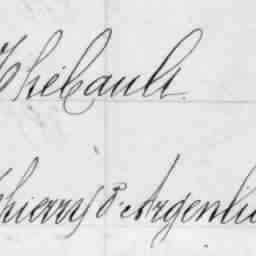 Thiébault
Thierry d'Argenlieu